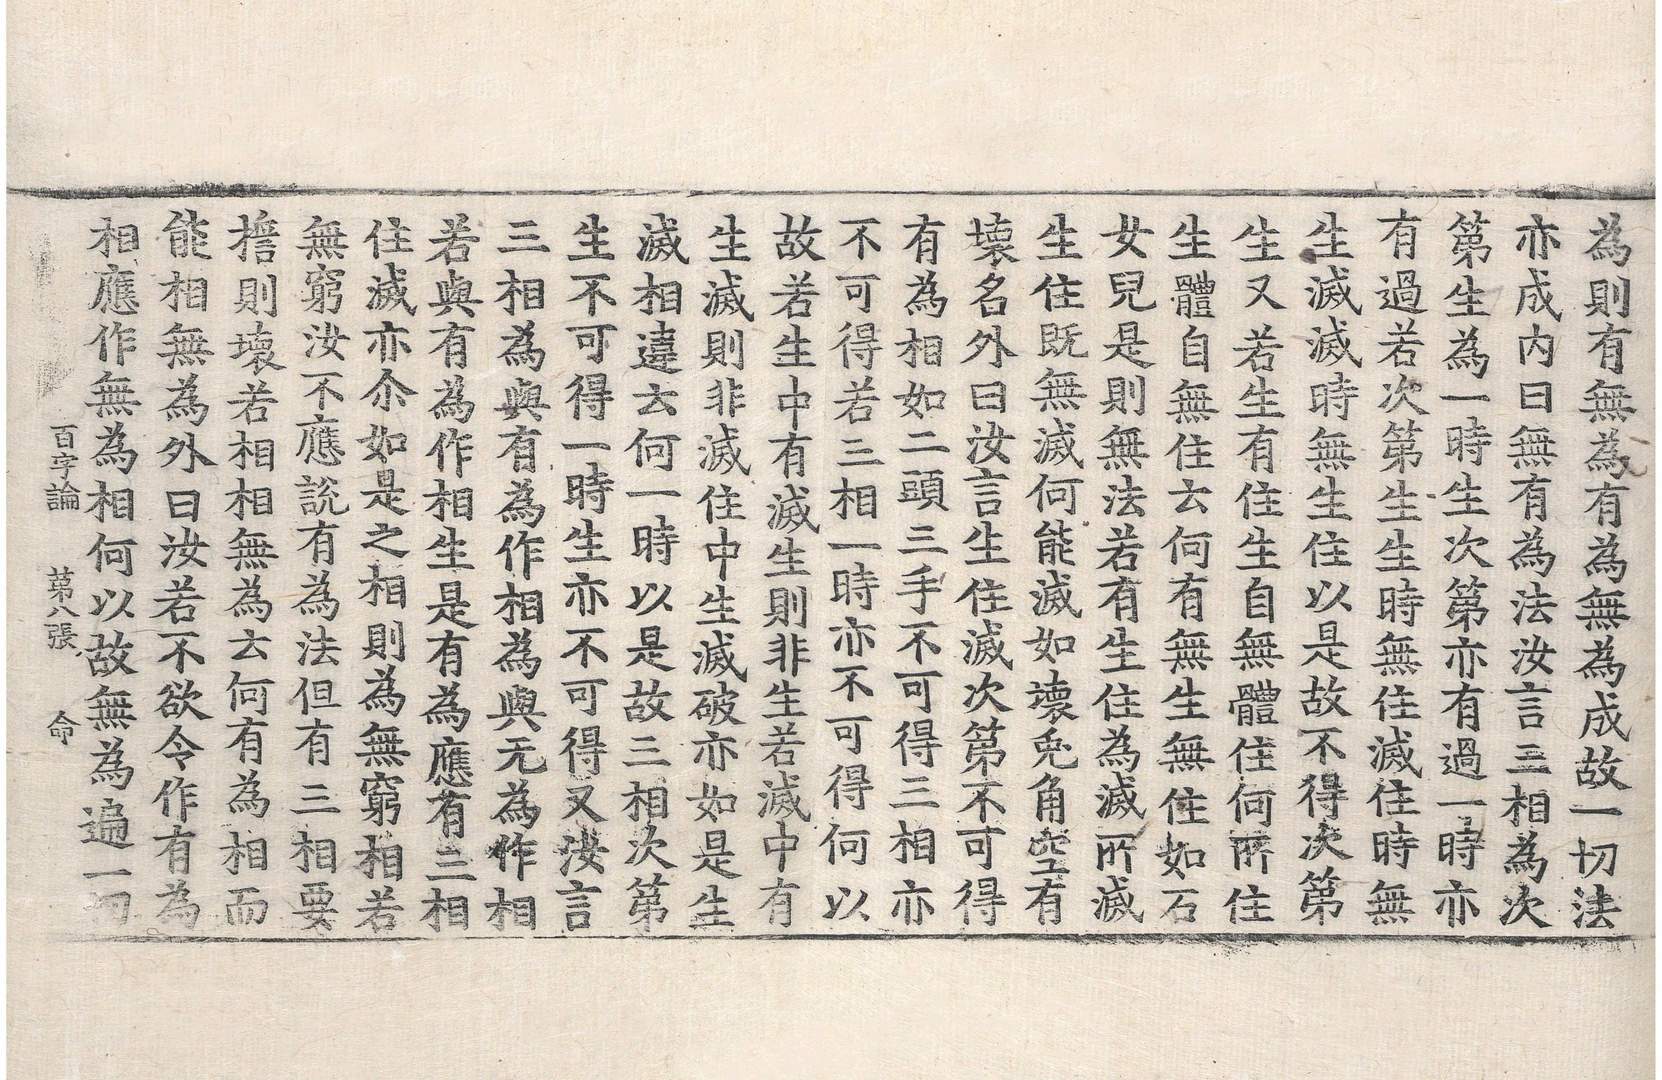 為則有無為有為無為成故一切法
亦成内曰無有為法汝言三相為次
第生為一時生次第亦有過一時亦
有過若次第生生時無住滅住時無
生滅滅時無生住以是故不得次第
生又若生有住生自無體住何所住
生體自無住去何有無生無住如石
女兒是則無法若有生住為滅所滅
生住既無滅何能滅如壞兎角空有
壞名外曰汝言生住滅次第不可得
有為相如二頭三手不可得三相亦
不可得若三相一時亦不可得何以
故若生中有滅生則非生若滅中有
生滅則非滅住中生滅破亦如是生
滅相違去何一時以是故三相次第
生不可得一時生亦不可得又汝言
三相為與有為作相為與无為作相
若與有為作相生是有為應有三相
住滅亦尒如是之相則為無窮相若
無窮汝不應説有為法但有三相要
擔則壞若相相無為去何有為相而
能相無為外曰汝若不欲令作有為
相應作無為相何以故無為遍一切
百字論 第八張 命